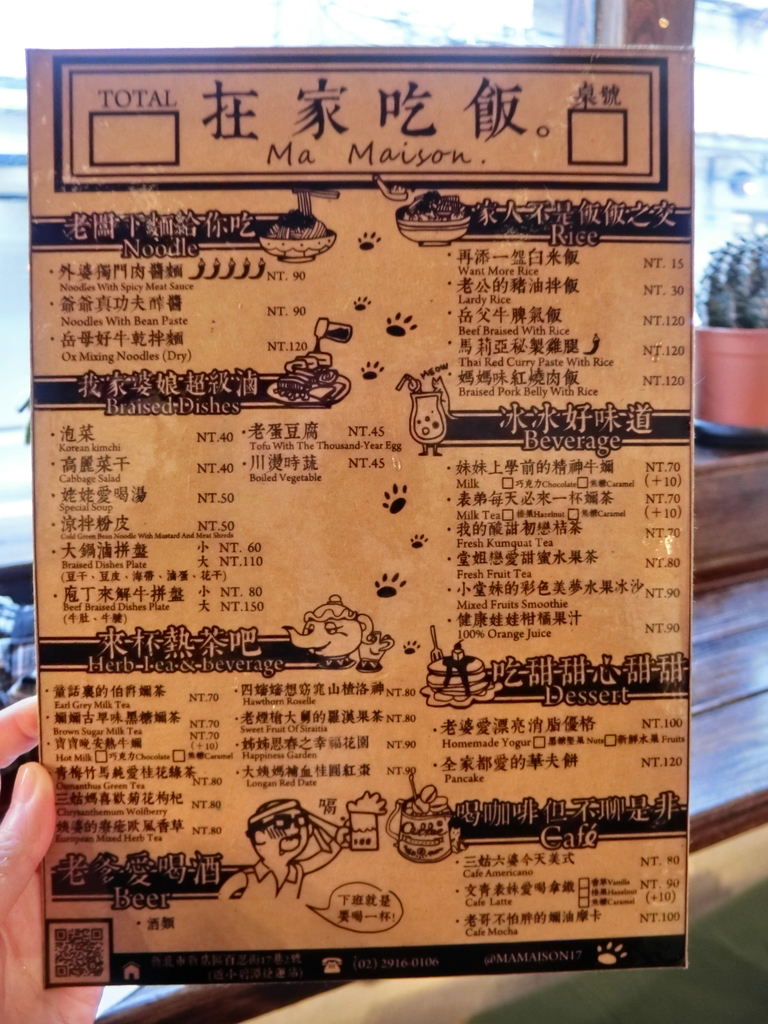 TOTAL
在家吃飯。
桌號
Ma Maison.
老闆下麵給你吃
Noodle
外婆獨門肉醬麵 NT. 90
Noodles With Spicy Meat Sauce
爺爺真功夫醡醬 NT. 90
Noodles With Bean Paste
岳母好牛乾拌麵 NT.120
Ox Mixing Noodles (Dry)
家人不是飯飯之交
Rice
再添一盌白米飯 NT. 15
Want More Rice
老公的豬油拌飯 NT. 30
Lardy Rice
岳父牛脾氣飯 NT.120
Beef Braised With Rice
馬莉亞秘製雞腿 NT.120
Thai Red Curry Paste With Rice
媽媽味紅燒肉飯 NT.120
Braised Pork Belly With Rice
我家婆娘超級滷
Braised Dishes
泡菜 NT.40
Korean kimchi
高麗菜干 NT.40
Cabbage Salad
姥姥愛喝湯 NT.50
Special Soup
涼拌粉皮 NT.50
Cold Green Bean Noodle With Mustard And Meat Shreds
大鍋滷拼盤 小 NT. 60
Braised Dishes Plate 大 NT.110
(豆干、豆皮、海帶、滷蛋、花干)
庖丁來解牛拼盤 小 NT. 80
Beef Braised Dishes Plate 大 NT.150
(牛肚、牛腱)
老蛋豆腐 NT.45
Tofu With The Thousand-Year Egg
川燙時蔬 NT.45
Boiled Vegetable
MEOW
冰冰好味道
Beverage
妹妹上學前的精神牛嬭 NT.70
Milk 巧克力Chocolate 焦糖Caramel (+10)
表弟每天必來一杯嬭茶 NT.70
Milk Tea 榛果Hazelnut 焦糖Caramel (+10)
我的酸甜初戀桔茶 NT.70
Fresh Kumquat Tea
堂姐戀愛甜蜜水果茶 NT.80
Fresh Fruit Tea
小堂妹的彩色美夢水果冰沙 NT.90
Mixed Fruits Smoothie
健康娃娃柑橘果汁 NT.90
100% Orange Juice
來杯熱茶吧
Herb Tea & Beverage
童話裏的伯爵嬭茶 NT.70
Earl Grey Milk Tea
嬭嬭古早味黑糖嬭茶 NT.70
Brown Sugar Milk Tea
寶寶晚安熱牛嬭 NT.70 (+10)
Hot Milk 巧克力Chocolate 焦糖Caramel
青梅竹馬純愛桂花綠茶 NT.80
Osmanthus Green Tea
三姑媽喜歡菊花枸杞 NT.80
Chrysanthemum Wolfberry
姨婆的療癒歐風香草 NT.80
European Mixed Herb Tea
四嬸嬸想窈窕山楂洛神 NT.80
Hawthorn Roselle
老煙槍大舅的羅漢果茶 NT.80
Sweet Fruit Of Siraitia
姊姊思春之幸福花園 NT.90
Happiness Garden
大姨媽補血桂圓紅棗 NT.90
Longan Red Date
吃甜甜心甜甜
Dessert
老婆愛漂亮消脂優格 NT.100
Homemade Yogur 黑糖堅果 Nuts 新鮮水果 Fruits
全家都愛的華夫餅 NT.120
Pancake
喝咖啡但不聊是非
Café
三姑六婆今天美式 NT. 80
Cafe Americano
文青表妹愛喝拿鐵 香草Vanilla NT. 90
Cafe Latte 榛果Hazelnut (+10)
焦糖Caramel
老哥不怕胖的嬭油摩卡 NT.100
Cafe Mocha
老爹愛喝酒
Beer
酒類
喝
下班就是
要喝一杯!
(02) 2916-0106
@MAMAISON17